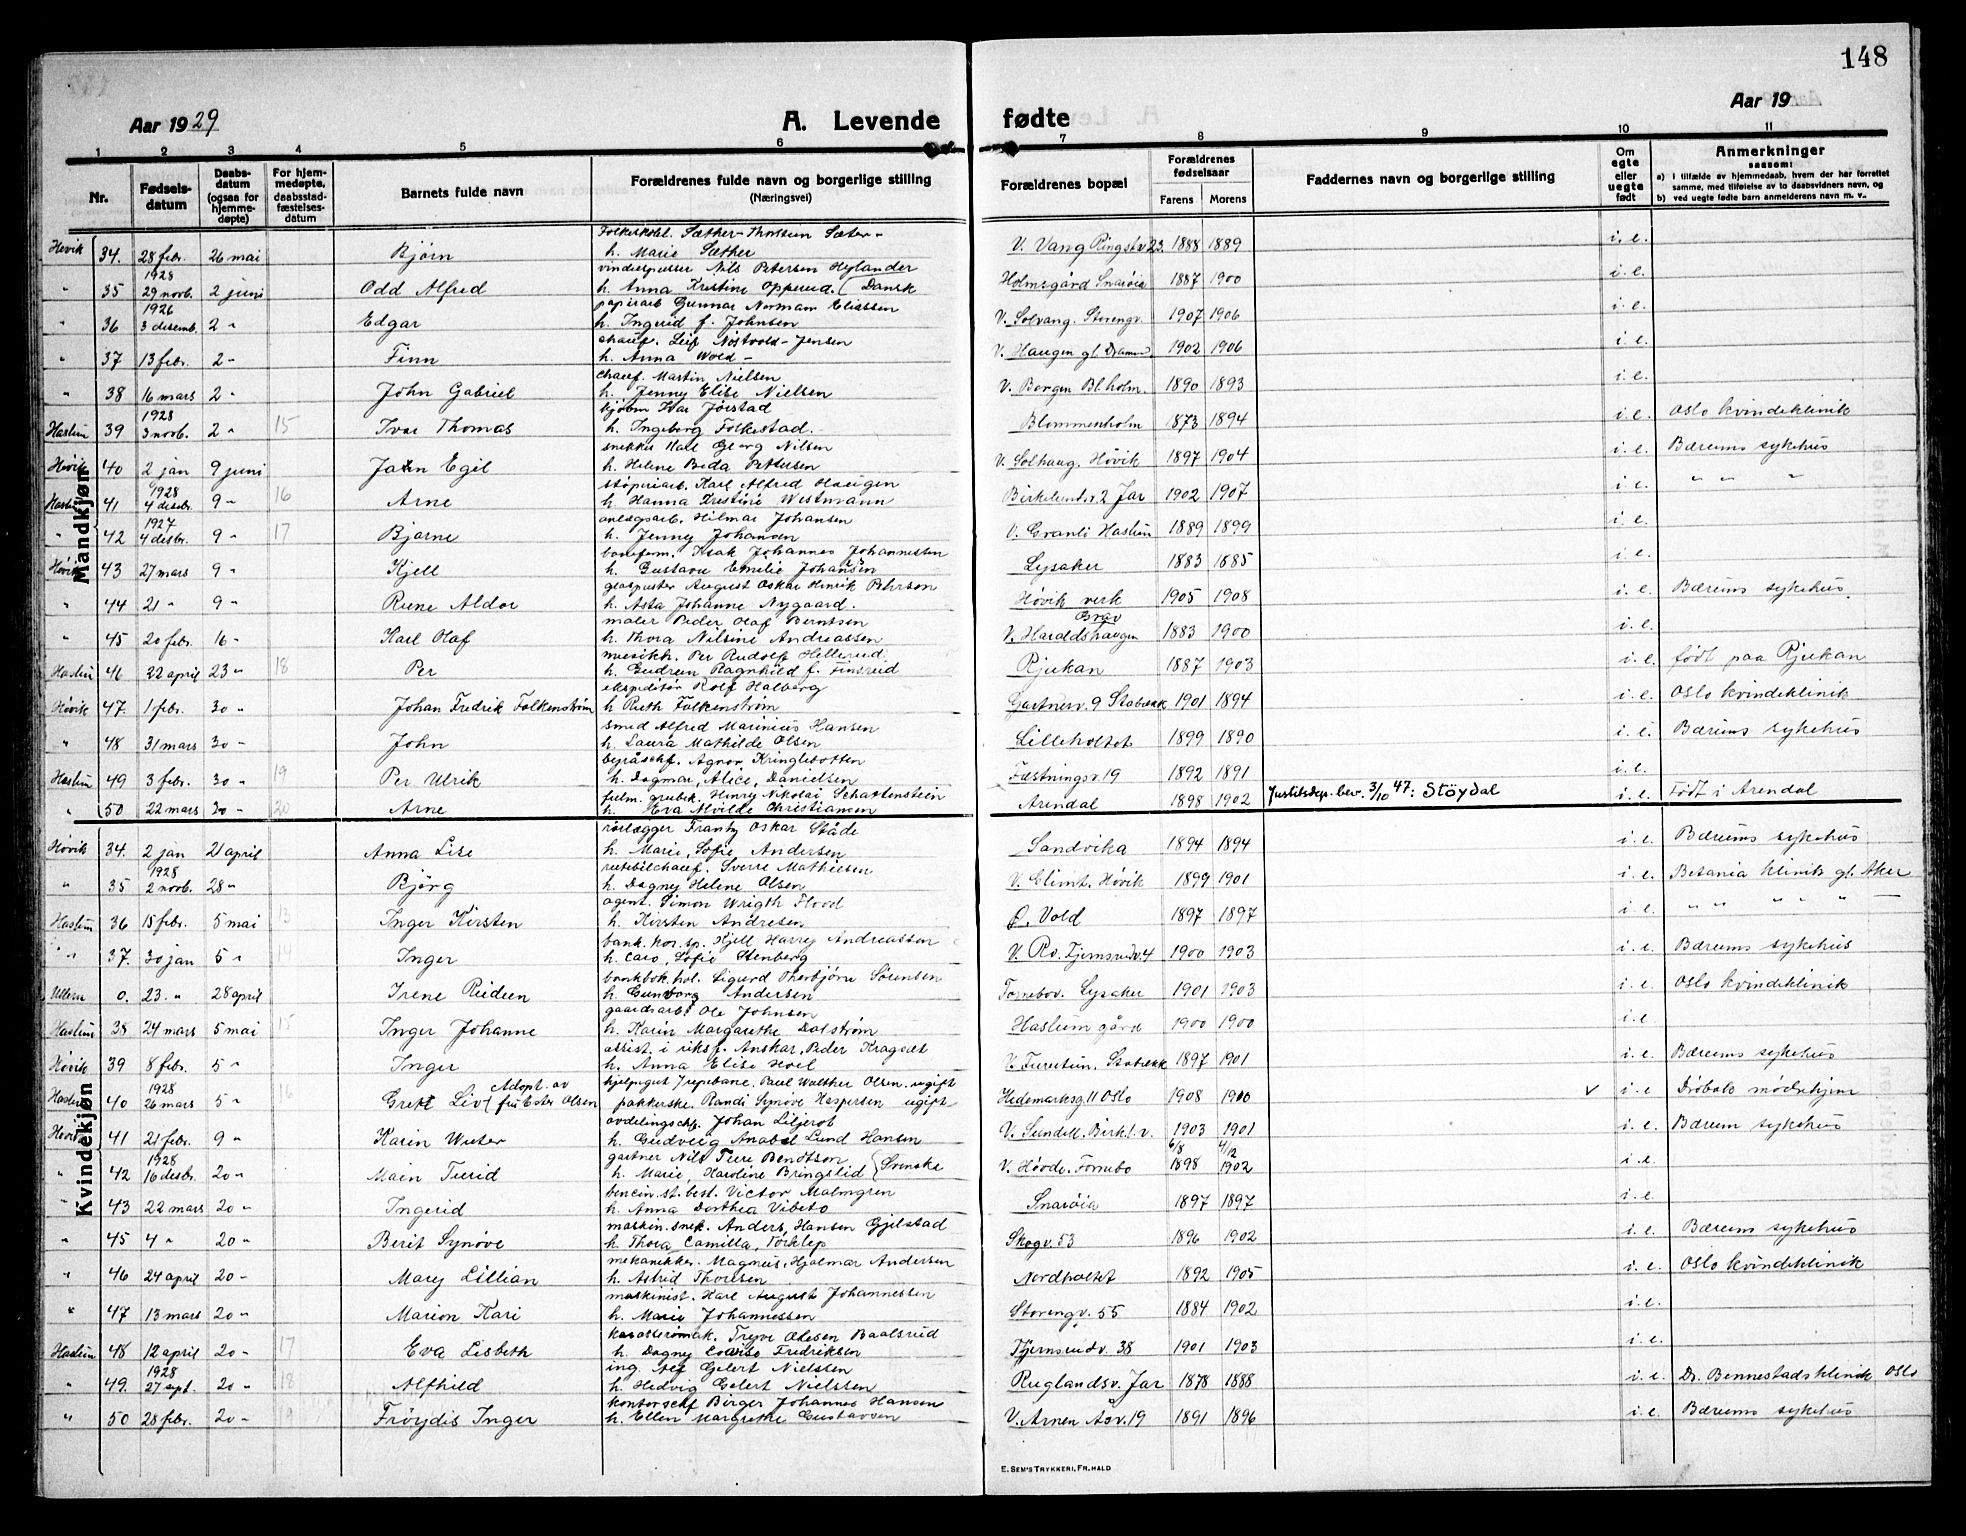 148
Aar 1929 A. Levende fødte Aar 19
1 2 3 4 5 6 7 8 9 10 11
Nr. Fødsels-datum Daabs-datum (ogsaa for hjemme-døpte) For hjem-medøpte, daabsstad-fæstelses-datum Barnets fulde navn Forældrenes fulde navn og borgerlige stilling (Næringsvei) Forældrenes bopæl Forældrenes fødselsaar Farens Morens Faddernes navn og borgerlige stilling Om egte eller uegte født Anmerkninger saasom: a) i tilfælde av hjemmedaab, hvem der har forrettet samme, med tilføielse av to daabsvidners navn, og b) ved uegte fødte barn anmelderens navn m. v.
Mandkjøn
Høvik 34. 28 febr. 26 mai Bjørn Sæther - Thorsten Sæter - h. Marie Sæther V. Vang Ringstv 23. 1888 1889 i. e.
" 35 1928 29 novb. 2 juni Odd Alfred vinduspusser Nils Petersen Hylander h. Anna Kristine Opperud. (Dansk Holmsgård Snarøia 1887 1900 i. e.
" 36 1926 3 desemb. 2 " Edgar papirarb Gunnar Norman Eliassen h. Ingerid f. Johnsen V. Solvang. Storengv. 1907 1906 i. e.
" 37 13 febr. 2 - Finn chauf. Leif Nøstvold - Jensen h. Anna Wold - V. Haugen gl. Dramv. 1902 1906 i. e.
" 38 16 mars 2 " John Gabriel chauf. Martin Nielsen h. Jenny Elise Nielsen V. Borgen Bl.holm. 1890 1893 i. e.
Haslum 39 1928 3 novb. 2 " 15 Ivar Thomas kjøbm Ivar Jørstad h. Ingeborg Folkestad. Blommenholm 1873 1894 i. e. Oslo kvindeklinik
Høvik 40 2 jan 9 juni Jahn Egil snekker Karl Georg Nilsen h. Helene Beda Pettersen V. Solhaug. Høvik 1897 1904 i. e. Bærums sykehus
Haslum 41 1928 4 desbr. 9 " 16 Arne støperiarb. Karl Alfred Haugen h. Hanna Kristine Westmann Birkelundv. 2 Jar 1902 1907 " " "
" 42 1927 4 desbr. 9 " 17 Bjarne anlægsarb. Hilmar Johansen h. Jenny Johansen V. Granli Haslum 1889 1899 i. e.
Høvik 43 27 mars 9 " Kjell baneform. Isak Johannes Johannessen h. Gustava Emelie Johansen Lysaker 1883 1885 i. e.
" 44 21 " 9 " Rune Aldor glaspuster August Oskar Henrik Pehrson h. Asta Johanne Nygaard. Høvik verk 1905 1908 i. e. Bærums sykehus.
" 45 20 febr. 16 - Karl Olaf maler Peder Olaf Berntsen h. Thora Nilsine Andreassen V. Haraldshaugen 1883 1900 i. e.
Haslum 46 22 april 23 " 18 Per musikh. Per Rudolf Hellerud. h. Gudrun Ragnhild f. Finsrud Rjukan 1887 1903 i. e. født paa Rjukan
Høvik 47. 1 febr. 30 " Johan Fredrik Falkenstrøm ekspeditør Rolf Halberg h Ruth Falkenstrøm Gartnerv. 9 Stabækk 1901 1894 i. e. Oslo kvindeklinik
" 48 31 mars 30 - John smed Alfred Marinius Hansen h. Laura Mathilde Olsen Lilleholtet 1899 1890 i. e. Bærums sykehus
Haslum 49 3 febr. 30 " 19 Per Ulrik byråschf. Agnar Kringlebotten h. Dagmar, Alice, Danielsen Fæstningsv. 19 1892 1891 i. e.
" 50 22 mars 30 " 20 Arne Henry Nikolai Schattenstein h. Eva Alvilde Christiansen Arendal 1898 1902 Justitsdep. bev. 3/10 47: Støydal i. e. Født i Arendal
Kvindekjøn
Høvik 34. 2 jan 21 april Anna Lise rørlægger Frantz Oskar Ståde h. Marie, Sofie Andersen Sandvika 1894 1894 i. e. Bærums sykehus
" 35 1928 2 novb. 28 " Bjørg rutebilchauf. Sverre Mathiesen h. Dagny Helene Olsen V. Glimt, Høvik 1899 1901 i. e. Betania klinik gl. Aker
Haslum 36 15 febr. 5 mai 13 Inger Kirsten agent. Simon Wrigth Flood h. Kirsten Andresen Ø. Vold 1897 1897 i. e. " " " " " -
" 37. 30 jan 5 " 14 Inger bank. kor. sp. Kjell Harry Andreassen h. Caro, Sofie Stenberg V. Ro. Tjernsrudv. 4 1900 1903 i. e. Bærums sykehus
Ullern 0. 23. " 28 april Irene Reidun bankbok.hol. Sigurd Thorbjørn Sørensen h. Gunvorg Andersen Fornebov. Lysaker 1901 1903 i. e. Oslo kvindeklinik
Haslum 38 24 mars 5 mai 15 Inger Johanne gaardsarb. Ole Johnsen h. Karin Margarethe Dalstrøm Haslum gård 1900 1900 i. e.
Høvik 39 8 febr. 5 " Inger assist. i riksf. Anskar, Peder Kragset h. Anna Elise Hoel V. Furutun, Stabækk 1897 1901 i. e. Bærums sykehus
Haslum 40 1928 26 mars 5 " 16 Grete Liv (Adopt. av fru Ester Olsen Paul Walther Olsen. ugift Randi Synøve Kaspersen ugift Hedemarksg 11 Oslo 1908 1910 v i. e Drøbak mødrehjem
Høvik 41 21 febr. 9 " Karin Wuter avdelingschf. Johan Liljerot h. Gudveig Anabel Lund Hansen V. Sundell. Birk.l.v. 1903 1901 i. e. Bærum sykehus
" 42 1928 16 desbr. 20 " Main Turid gartner Nils Ture Bendtson h. Marie, Karoline Bringslid (Svenske V. Høvde. Fornebo 6/8 1898 4/12 1902 i. e.
" 43 22 mars 20 " Ingerid bencin. st. best. Victor Malmgren h. Anna Dorthea Vibeto Snarøia 1897 1897 i. e.
" 45 4 " 20 " Berit Synøve maskin. snek. Anders, Hansen Gjelstad h. Thora Camilla, Torklep Skogv. 53 1896 1902 i. e. Bærums sykehus
" 46 24 april 20 - Mary Lillian mekanikker. Magnus, Hjalmar Andersen h. Astrid Thoresen Nordholtet 1892 1905 i. e. Oslo kvindeklinik
" 47 13 mars 20 " Marion Kari maskinist. Karl August Johannessen h. Marie Johannessen Storengv. 55 1884 1902 i. e.
Haslum 48 12 april 20 - 17 Eva Lisbeth Trygve Olesen Baalsrud h. Dagny Lovise Fredriksen Tjernsrudv. 38 1901 1903 i. e.
" 49. 1928 27 sept. 20 " 18 Alfhild ing. Alf Gelert Nielsen h. Hedvig Gelert Nielsen Ruglandsv. Jar 1878 1888 i. e. Dr. Bennestads klinik Oslo
" 50 28 febr. 20 - 19 Frøydis Inger kontorschf Birger Johannes Hansen h. Ellen Margrethe Gustavsen V. Arnen Asv. 19 1891 1896 i. e. Bærums sykehus
E. SEM'S TRYKKERI, FR.HALD